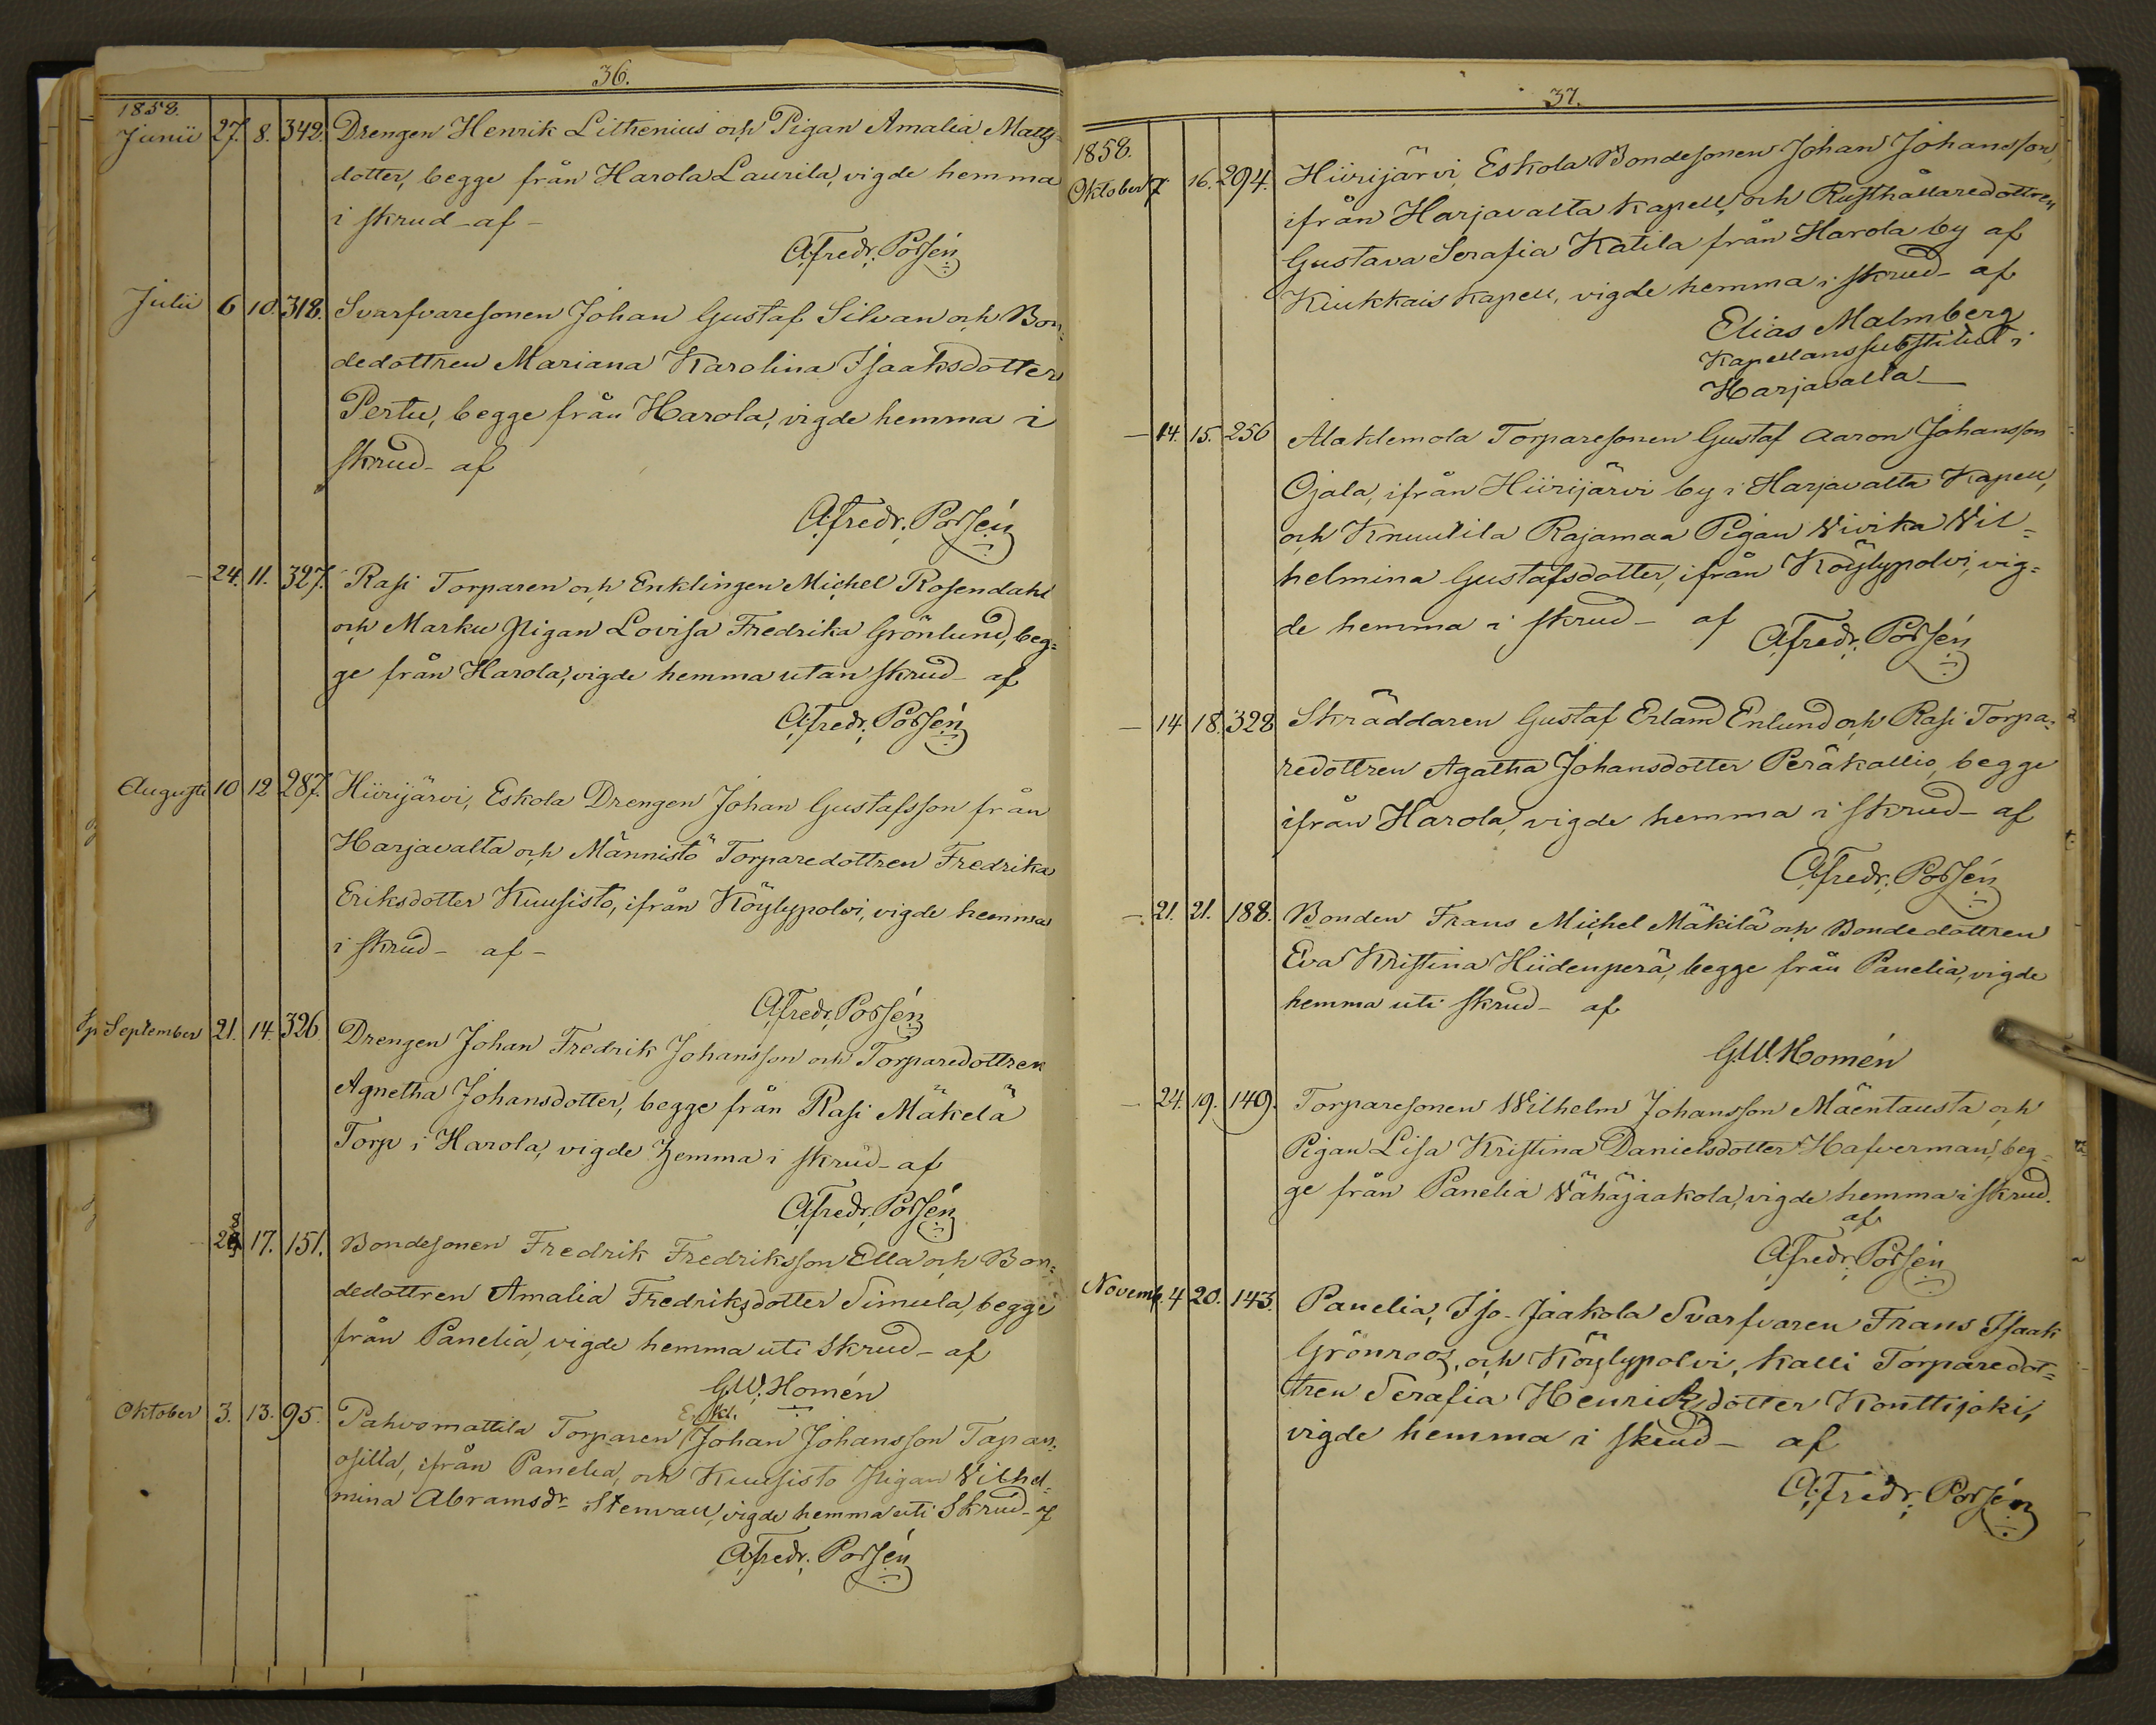 36.
1858.
Junii 27. 8. 342. Drengen Henrik Lithenius och Pigan Amalia Matts-
dotter, begge från Harola Laurila, vigde hemma
i skrud - af -
A. Fredr. Porsén
Julii 6 10. 318. Svarfvaresonen Johan Gustaf Silvan och Bon=
dedottren Mariana Karolina Isaaksdotter
Pertu, begge från Harola, vigde hemma i
skrud - af
A. Fredr. Porsén
— 24. 11. 327. Rasi Torparen och Enklingen Michel Rosendahl
och Marku Pigan Lovisa Fredrika Grönlund, beg=
ge från Harola, vigde hemma utan skrud - af
A. Fredr. Porsén
Augusti 10 12 287. Hiirijärvi, Eskola Drengen Johan Gustafsson från
Harjavalta och Männistö Torparedottren Fredrika
Eriksdotter Kuusisto, ifrån Köylypolvi, vigde hemma
i skrud - af -
A. Fredr. Porsén
September 21. 14. 326 Drengen Johan Fredrik Johansson och Torparedottren
Agnetha Johansdotter, begge från Rasi Mäkelä
Torp i Harola, vigde hemma i skrud - af
A. Fredr. Porsén
— 28 17. 151. Bondesonen Fredrik Fredriksson Ella och Bon=
dedottren Amalia Fredriksdotter Simula, begge
från Panelia, vigde hemma uti Skrud - af
G.W. Homén
Enkl.
Oktober 3. 13. 95. Pahvomattila Torparen Johan Johansson Tapan=
osilta, ifrån Panelia, och Kuusisto Pigan Vilhel=
mina Abramsdr Stenvall, vigde hemma uti Skrud - af
A. Fredr. Porsén
37.
1858.
Oktober 7 16. 294. Hiirijärvi, Eskola Bondesonen Johan Johansson,
ifrån Harjavalta Kapell, och Rusthållaredottren
Gustava Serafia Katila från Harola by af
Kiukkais Kapell, vigde hemma i skrud - af
Elias Malmberg
Kapellanssubstitut i
Harjavalta
— 14. 15. 256 Alahlemola Torparesonen Gustaf Aaron Johansson
Ojala, ifrån Hiirijärvi by i Harjavalta Kapell,
och Knuutila Rajamaa Pigan Vivika Vil=
helmina Gustafsdotter, ifrån Köylypolvi, vig=
de hemma i skrud - af
A. Fredr. Porsén
— 14 18. 328 Skräddaren Gustaf Erland Enlund och Rasi Torpa=
redottren Agatha Johansdotter Peräkallio, begge
ifrån Harola, vigde hemma i skrud - af
A. Fredr. Porsén
— 21. 21. 188. Bonden Frans Michel Mäkilä och Bondedottren
Eva Kristina Hiidenperä, begge från Panelia, vigde
hemma uti skrud - af
G.W. Homén
— 24. 19. 149. Torparesonen Wilhelm Johansson Mäentausta och
Pigan Lisa Kristina Danielsdotter Hafverman, beg=
ge från Panelia Vähäjaakola, vigde hemma i skrud.
af
A. Fredr. Porsén
Novemb. 4 20. 143. Panelia, Iso-Jaakola Svarfvaren Frans Isaak
Grönroos, och Köylypolvi, Kalli Torparedot=
tren Serafia Henriksdotter Konttijoki,
vigde hemma i skrud - af
A. Fredr. Porsén